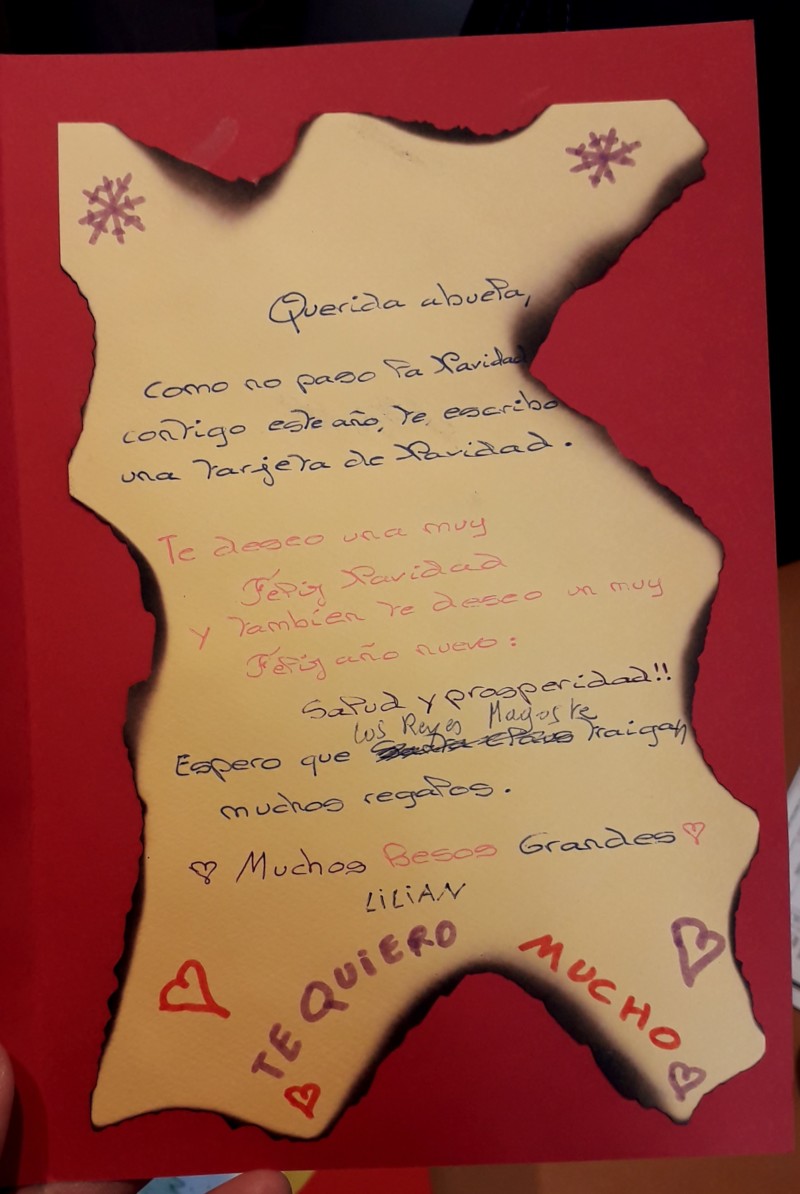 Querida abuela,
Como no paso la Navidad
contigo este año, te escribo
una tarjeta de Navidad.
Te deseo una muy
Feliz Navidad
y también te deseo un muy
Feliz año nuevo:
Salud y prosperidad!!
Los Reyes Magos te
Espero que traigan
muchos regalos.
Muchos Besos Grandes
LILIAN
TE QUIERO MUCHO